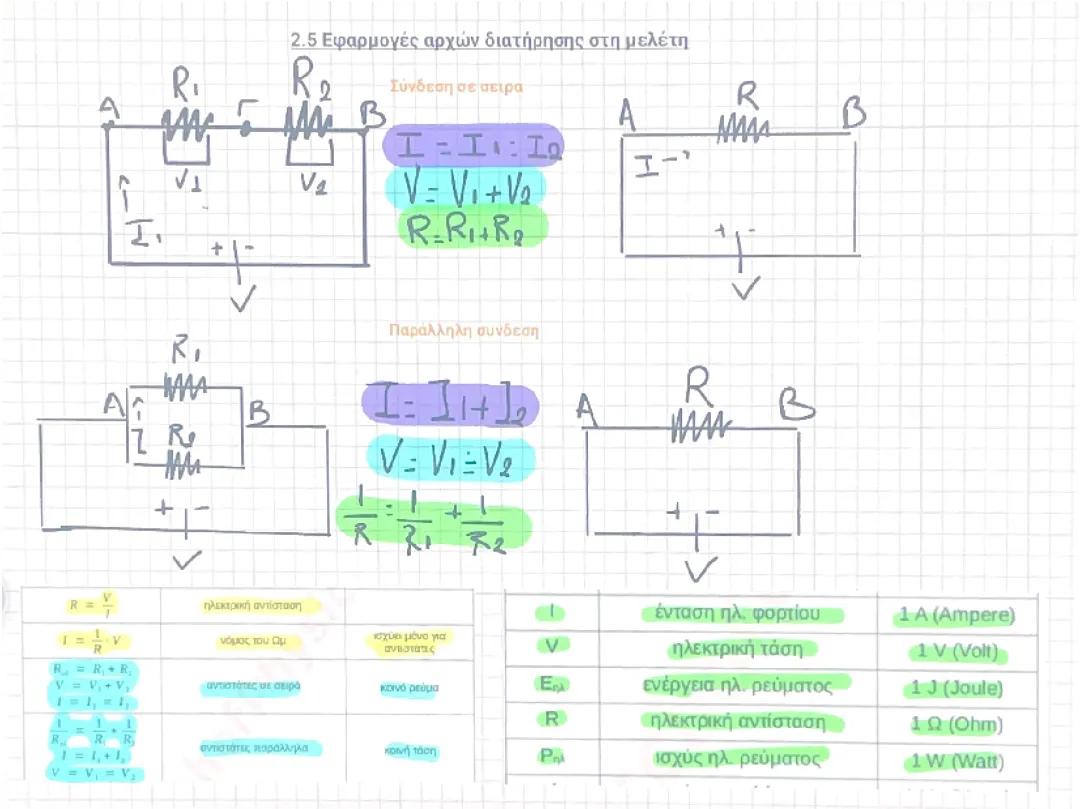 2.5 Εφαρμογές αρχών διατήρησης στη μελέτη
Σύνδεση σε σειρα
R₁ R₂
A Γ B
V1 V2
I₁
+ -
V
I = I₁ = I₂
V = V₁ + V₂
R = R₁ + R₂
R
A B
I →
+ -
V
Παράλληλη συνδεση
R₁
A B
I R₂
+ -
V
I = I₁ + I₂
V = V₁ = V₂
1/R = 1/R₁ + 1/R₂
R
A B
+ -
V
R = V/I ηλεκτρική αντίσταση
I = 1/R · V νόμος του Ωμ ισχύει μόνο για αντιστάτες
R = R₁ + R₂
V = V₁ + V₂ αντιστάτες σε σειρά κοινό ρεύμα
I = I₁ = I₂
1/R = 1/R₁ + 1/R₂
I = I₁ + I₂ αντιστάτες παράλληλα κοινή τάση
V = V₁ = V₂
I ένταση ηλ. φορτίου 1 A (Ampere)
V ηλεκτρική τάση 1 V (Volt)
Eηλ ενέργεια ηλ. ρεύματος 1 J (Joule)
R ηλεκτρική αντίσταση 1 Ω (Ohm)
Pηλ ισχύς ηλ. ρεύματος 1 W (Watt)